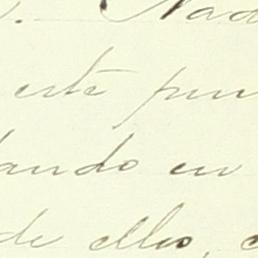 Nad
este pun
ando en
de ellos, c